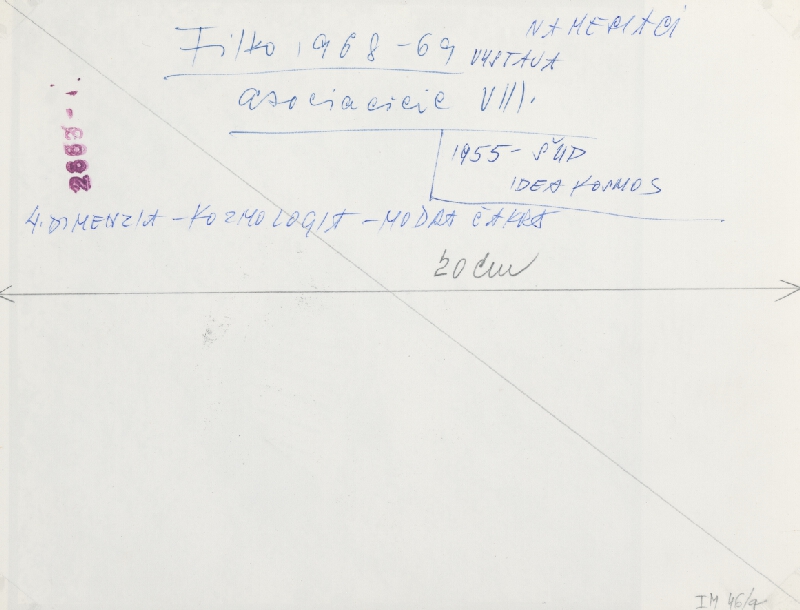 Filko 1968-69
NA MERIACI
VYSTAVA
asociacicie VIII.
1955-
IDEA KOSMOS
4. DIMENZIA - KOZMOLOGIA - MODRA ČAKRA
20 cm
IM 46/